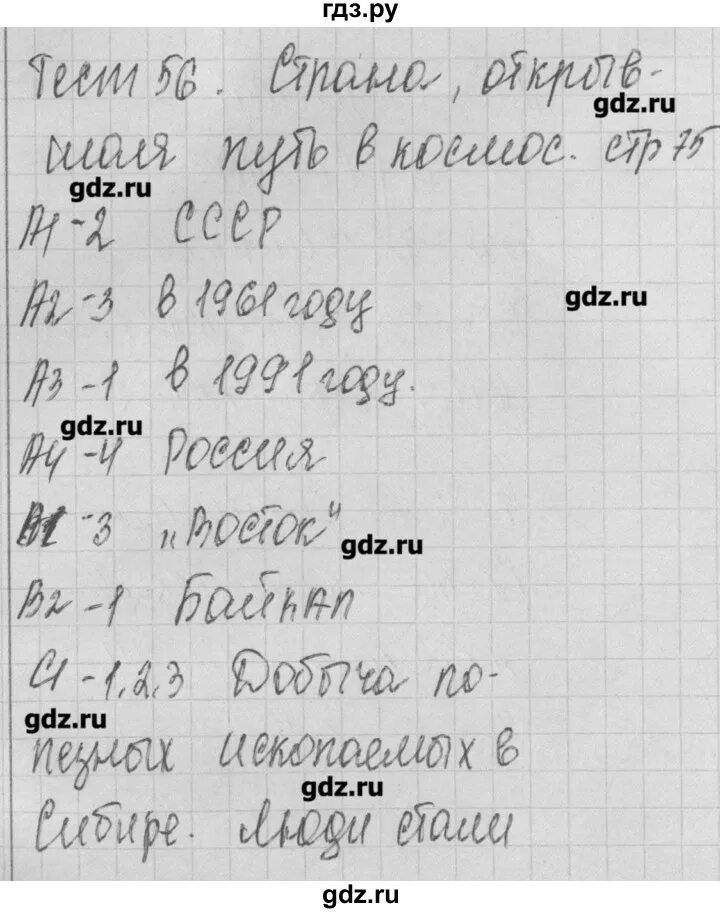 гдз.ру
Тест 56. Страна, открыв-
gdz.ru
шая путь в космос. стр 75
gdz.ru
А1-2 СССР
А2-3 в 1961 году
gdz.ru
А3-1 в 1991 году.
gdz.ru
А4-4 Россия
В1-3 „Восток"
gdz.ru
В2-1 БайкАл
С1-1,2,3 Добыча по-
gdz.ru
лезных ископаемых в
gdz.ru
Сибире. Люди стали
gdz.ru